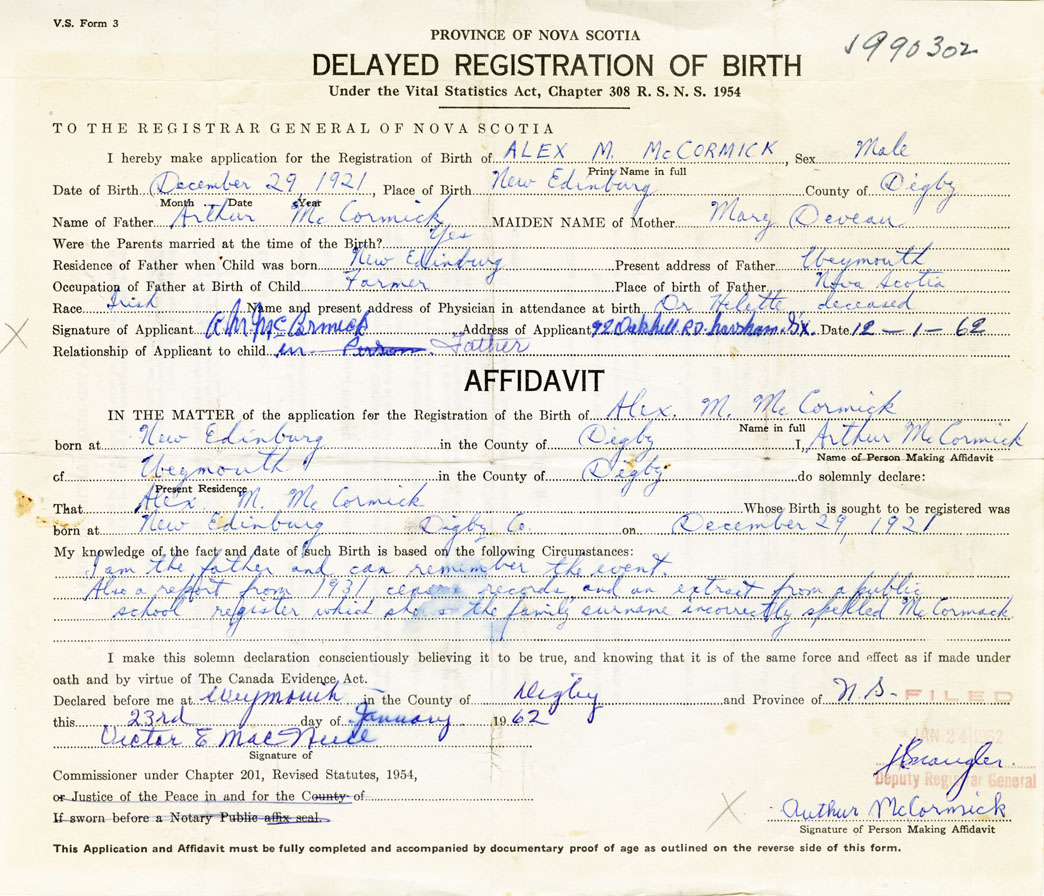 V.S. Form 3
1990302
PROVINCE OF NOVA SCOTIA
DELAYED REGISTRATION OF BIRTH
Under the Vital Statistics Act, Chapter 308 R. S. N. S. 1954
TO THE REGISTRAR GENERAL OF NOVA SCOTIA
I hereby make application for the Registration of Birth of ALEX M. McCORMICK, Sex Male
Print Name in full
Date of Birth December 29, 1921, Place of Birth New Edinburg County of Digby
Month Date Year
Name of Father Arthur McCormick MAIDEN NAME of Mother Mary Deveau
Were the Parents married at the time of the Birth? Yes
Residence of Father when Child was born New Edinburg Present address of Father Weymouth
Occupation of Father at Birth of Child Farmer Place of birth of Father Nova Scotia
Race Irish Name and present address of Physician in attendance at birth Dr deceased
Signature of Applicant A.M. McCormick Address of Applicant 92 Oakhill RD. Horsham. Sx. Date 12 - 1 - 62
Relationship of Applicant to child in Person. Father
AFFIDAVIT
IN THE MATTER of the application for the Registration of the Birth of Alex. M. McCormick
Name in full
born at New Edinburg in the County of Digby I, Arthur McCormick
Name of Person Making Affidavit
of Weymouth in the County of Digby do solemnly declare:
Present Residence
That Alex. M. McCormick Whose Birth is sought to be registered was
born at New Edinburg Digby Co. on December 29, 1921
My knowledge of the fact and date of such Birth is based on the following Circumstances:
I am the father and can remember the event.
Also a report from 1931 census records, and an extract from a public
school register which shows the family surname incorrectly spelled McCormack
I make this solemn declaration conscientiously believing it to be true, and knowing that it is of the same force and effect as if made under
oath and by virtue of The Canada Evidence Act.
Declared before me at Weymouth in the County of Digby and Province of N.S.
FILED
this 23rd day of January 1962
JAN 24 1962
Victor E MacNeice
Signature of
Commissioner under Chapter 201, Revised Statutes, 1954,
Deputy Registrar General
or Justice of the Peace in and for the County of
Arthur McCormick
If sworn before a Notary Public affix seal.
Signature of Person Making Affidavit
This Application and Affidavit must be fully completed and accompanied by documentary proof of age as outlined on the reverse side of this form.